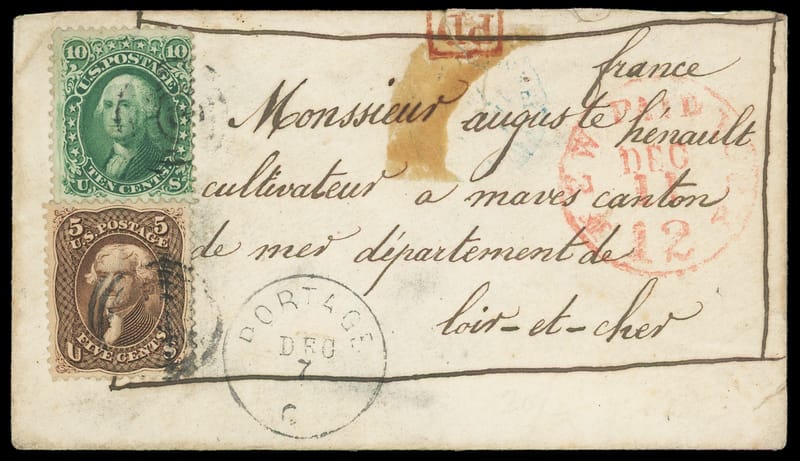 10 10
U.S. POSTAGE
TEN CENTS
U S
5 5
U.S. POSTAGE
FIVE CENTS
U S
PD
france
Monsieur auguste hénault
cultivateur a maves canton
de mer département de
loir-et-cher
PAID
DEC
12
PORTAGE
DEC
7